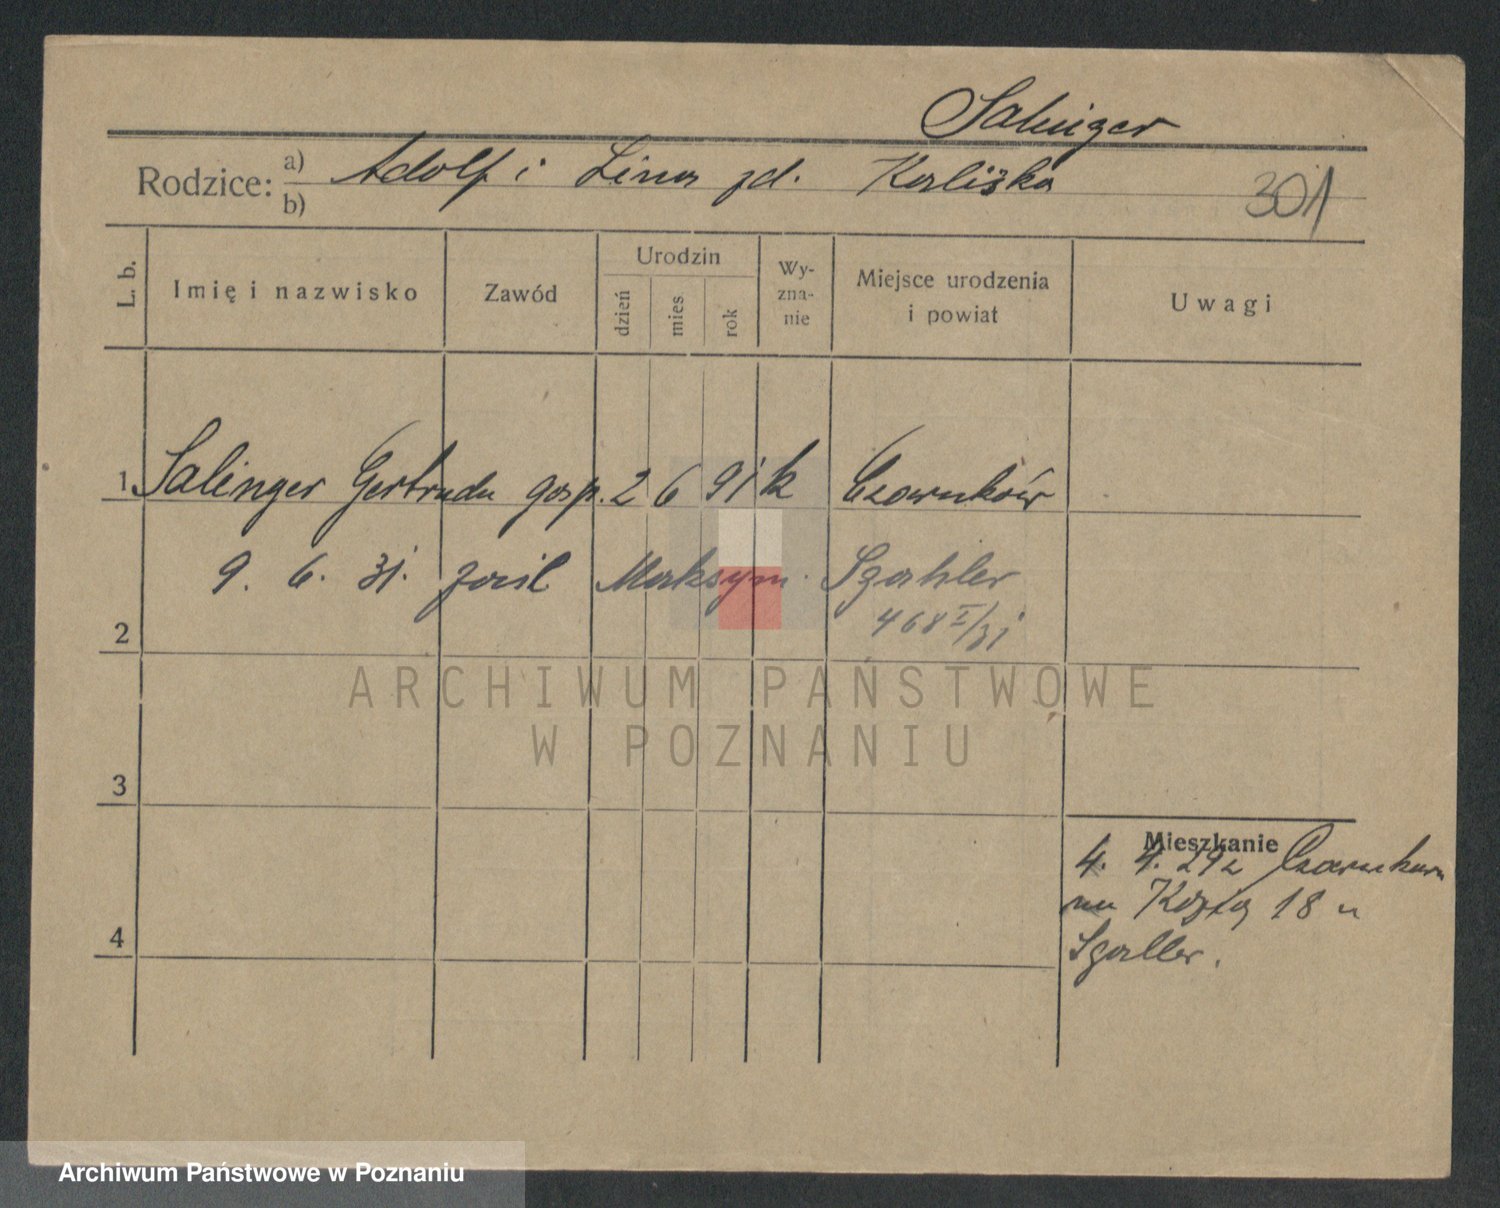 Salinger
Rodzice: a) Adolf i Lina zd. Kaliska
b)
301
L. b.
Imię i nazwisko
Zawód
Urodzin
dzień
mies
rok
Wy-
zna-
nie
Miejsce urodzenia
i powiat
Uwagi
1 Salinger Gertruda gosp. 2 6 91 k Czarnków
9. 6. 31. Maksym. Szahler
468 I/31
2
ARCHIWUM PAŃSTWOWE
W POZNANIU
3
Mieszkanie
4. 4. 29 z Czarnkowa
na 18 u
Szaller.
4
Archiwum Państwowe w Poznaniu